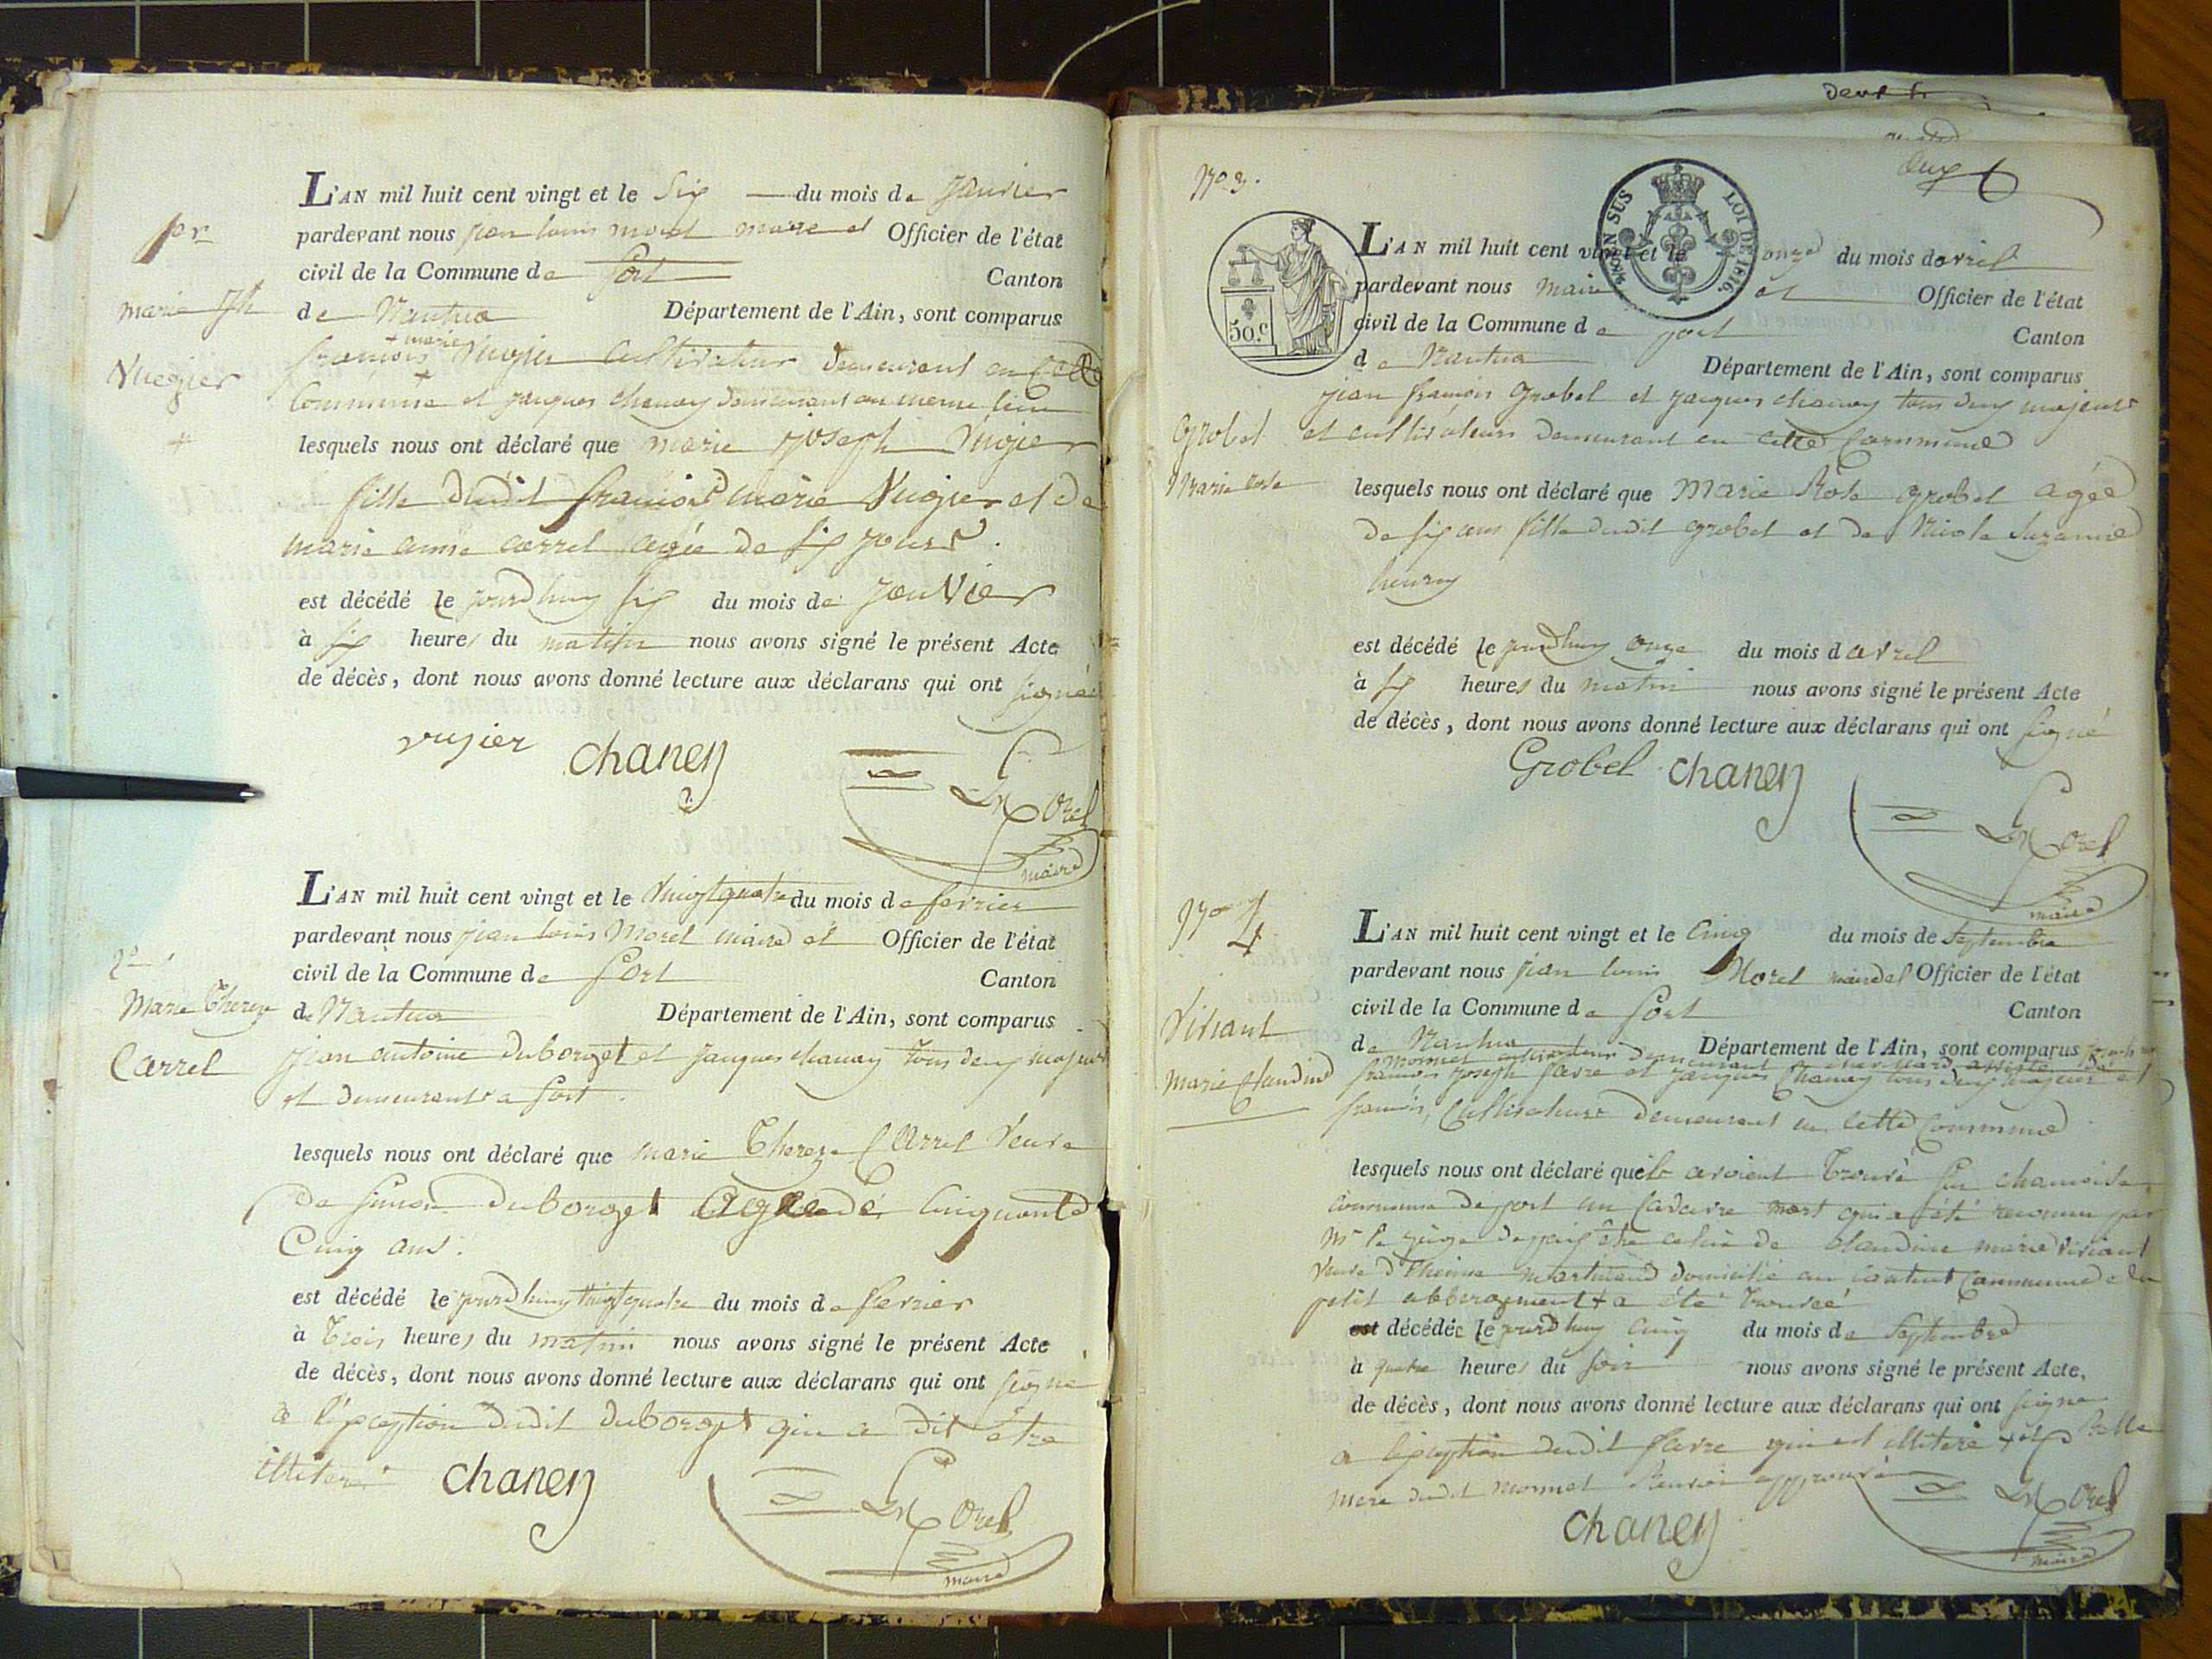 1er
marie Jh
Vuegier
L'AN mil huit cent vingt et le Six du mois de Janvier
pardevant nous jean louis morel maire et Officier de l'état
civil de la Commune de Port Canton
de Nantua Département de l'Ain, sont comparus
+ marie
francois Vugier cultivateur demeurant en Cette
Commune et jacques chanay demeurant au meme lieu
lesquels nous ont déclaré que marie joseph Vugier
fille dudit francois marie Vugier et de
marie anne carrel agée de six jours.
est décédé le jourdhuy six du mois de janvier
à six heures du matin nous avons signé le présent Acte
de décès, dont nous avons donné lecture aux déclarans qui ont signé
vugier chaney
Morel
maire
2e
Marie Thereze
Carrel
L'AN mil huit cent vingt et le Vingtquatre du mois de fevrier
pardevant nous jean louis Morel maire et Officier de l'état
civil de la Commune de Port Canton
de Nantua Département de l'Ain, sont comparus
jean antoine duborget et jacques chanay tous deux majeurs
et demeurants a Port.
lesquels nous ont déclaré que marie Thereze Carrel Veuve
de simon duborget agée de Cinquante
Cinq ans.
est décédé le jourdhuy vingtquatre du mois de fevrier
à Trois heures du matin nous avons signé le présent Acte
de décès, dont nous avons donné lecture aux déclarans qui ont signé
a l'exception dudit duborget qui a dit être
illiteré chaney
Morel
maire
deux
No 3.
TIMBRE SUS LOI DE 1816.
50.c
Grobel
Marie rose
L'AN mil huit cent vingt et le onze du mois davril
pardevant nous maire et Officier de l'état
civil de la Commune de port Canton
de Nantua Département de l'Ain, sont comparus
jean francois Grobel et jacques chanay tous deux majeurs
et cultivateurs demeurant en cette Commune
lesquels nous ont déclaré que Marie Rose grobel agée
de six ans fille dudit grobel et de Nicole Suzanne
henry
est décédé le jourdhuy onze du mois davril
à six heures du matin nous avons signé le présent Acte
de décès, dont nous avons donné lecture aux déclarans qui ont signé
Grobel chaney
Morel
maire
No 4
Viviant
marie Claudine
L'AN mil huit cent vingt et le Cinq du mois de Septembre
pardevant nous jean louis Morel maire et Officier de l'état
civil de la Commune de Port Canton
de Nantua Département de l'Ain, sont comparus
monnet cultivateur demeurant a assisté de
francois joseph favre et jacques Chanay tous deux majeurs et
francois, Cultivateurs demeurant en cette Commune
lesquels nous ont déclaré quils avoient Trouvé sur chamoise
commune de port un Cadavre mort qui a été reconnu par
Mr le juge de paix être celui de Claudine marie Viviant
Veuve d'Etienne martinand domicilié au Commune du
petit abbergement + a été trouvée
est décédée le jourdhuy cinq du mois de Septembre
à quatre heures du soir nous avons signé le présent Acte,
de décès, dont nous avons donné lecture aux déclarans qui ont signé
a l'exception dudit favre qui est illiteré +
mere dudit monnet Renvoi approuvé
chaney
Morel
maire